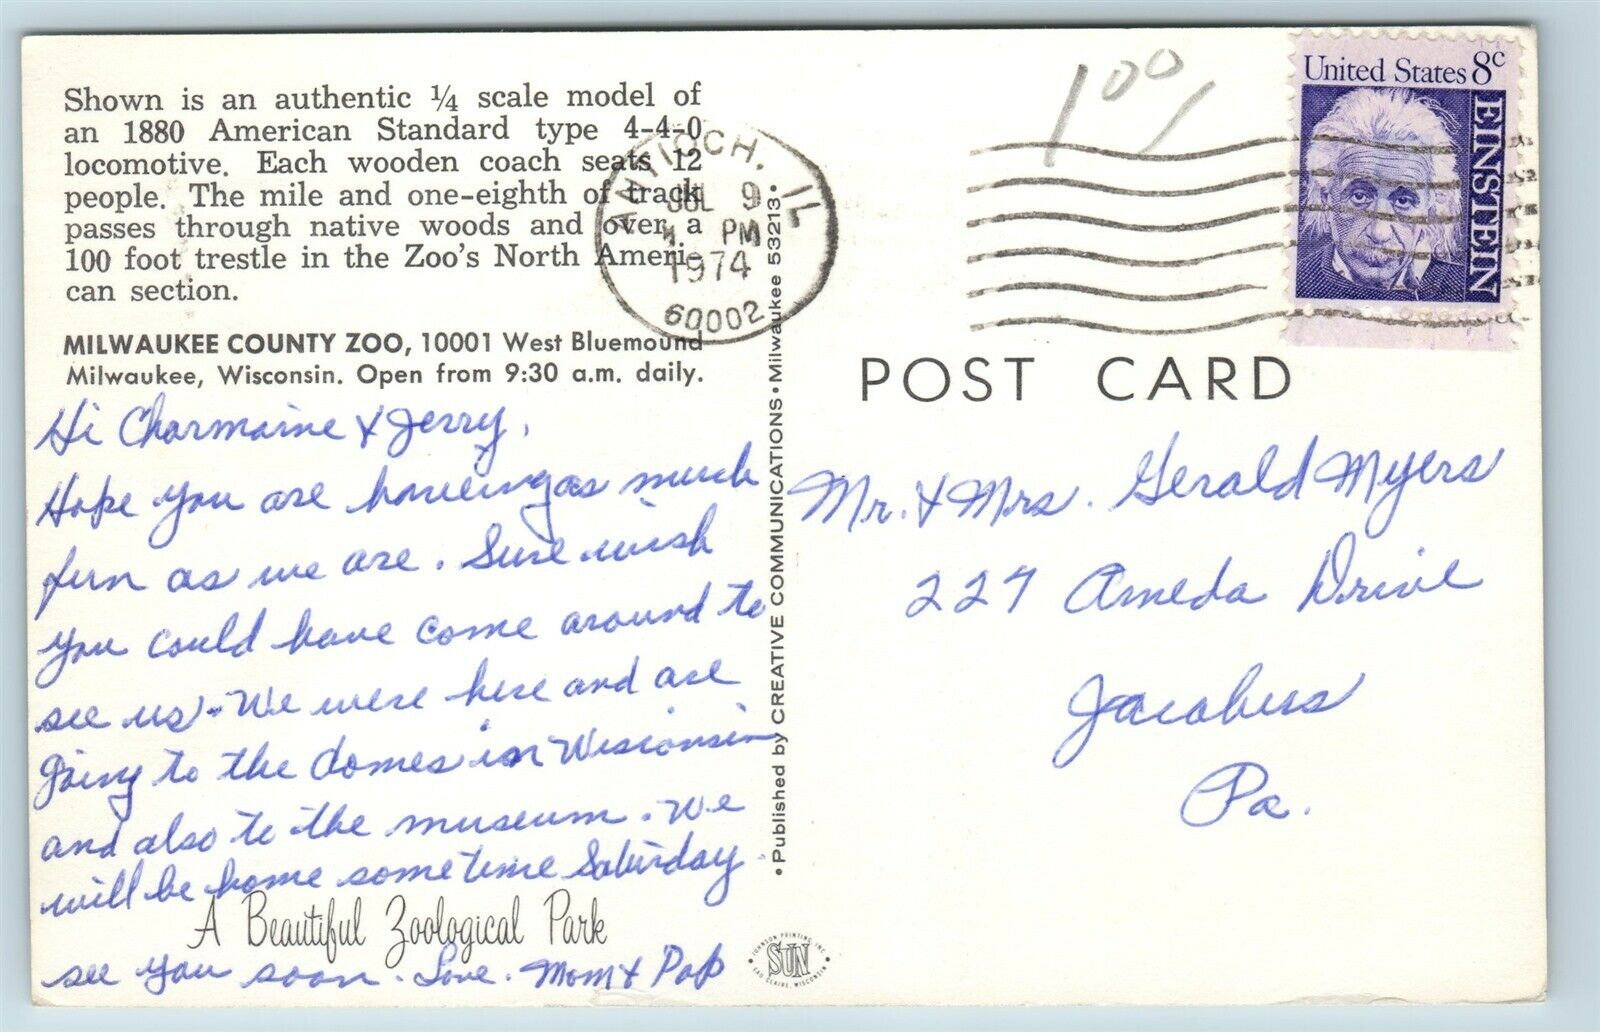 Shown is an authentic ¼ scale model of
an 1880 American Standard type 4-4-0
locomotive. Each wooden coach seats 12
people. The mile and one-eighth of track
passes through native woods and over a
100 foot trestle in the Zoo's North Ameri-
can section.
MILWAUKEE COUNTY ZOO, 10001 West Bluemound
Milwaukee, Wisconsin. Open from 9:30 a.m. daily.
Hi Charmaine & Jerry,
Hope you are having as much
fun as we are. Sure wish
you could have come around to
see us. We were here and are
going to the domes in Wisconsin
and also to the museum. We
will be home sometime Saturday.
A Beautiful Zoological Park
see you soon. Love. Mom & Pop
• Published by CREATIVE COMMUNICATIONS • Milwaukee 53213 •
ANTIOCH, IL
JUL 9
PM
1974
60002
100/
United States 8c
EINSTEIN
POST CARD
Mr. & Mrs. Gerald Myers
227 Ameda Drive
Jacobus
Pa.
JOHNSON PRINTING INC.
SUN
EAU CLAIRE, WISCONSIN